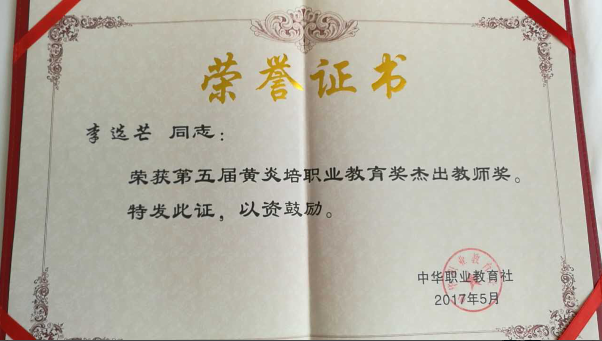 荣誉证书
李选芒 同志：
荣获第五届黄炎培职业教育奖杰出教师奖。
特发此证，以资鼓励。
中华职业教育社
2017年5月